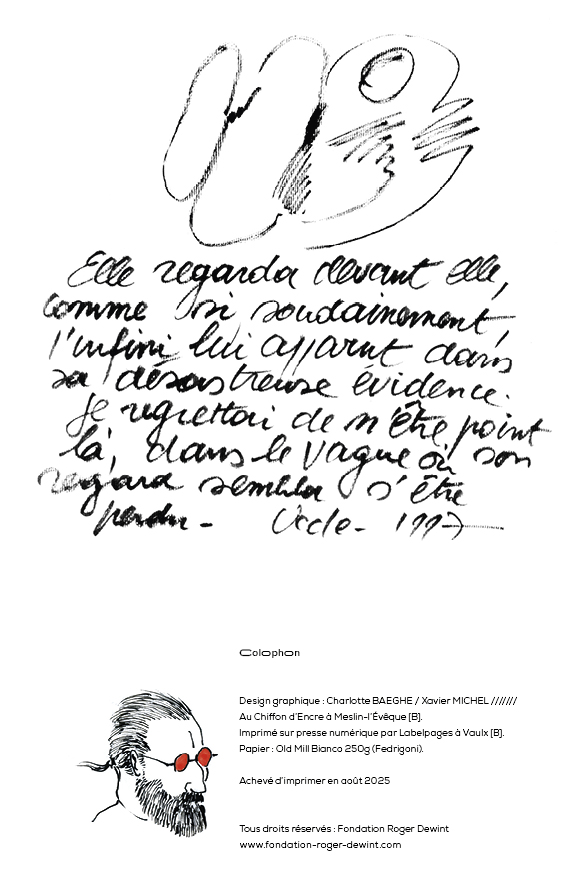 Elle regarda devant elle,
comme si soudainement,
l'infini lui apparut dans
sa désastreuse évidence.
Je regrettai de n'être point
là, dans le vague où son
regard sembla s'être
perdu - Uccle - 1997
Colophon
Design graphique : Charlotte BAEGHE / Xavier MICHEL ///////
Au Chiffon d'Encre à Meslin-l'Évêque [B].
Imprimé sur presse numérique par Labelpages à Vaulx [B].
Papier : Old Mill Bianco 250g (Fedrigoni).
Achevé d'imprimer en août 2025
Tous droits réservés : Fondation Roger Dewint
www.fondation-roger-dewint.com